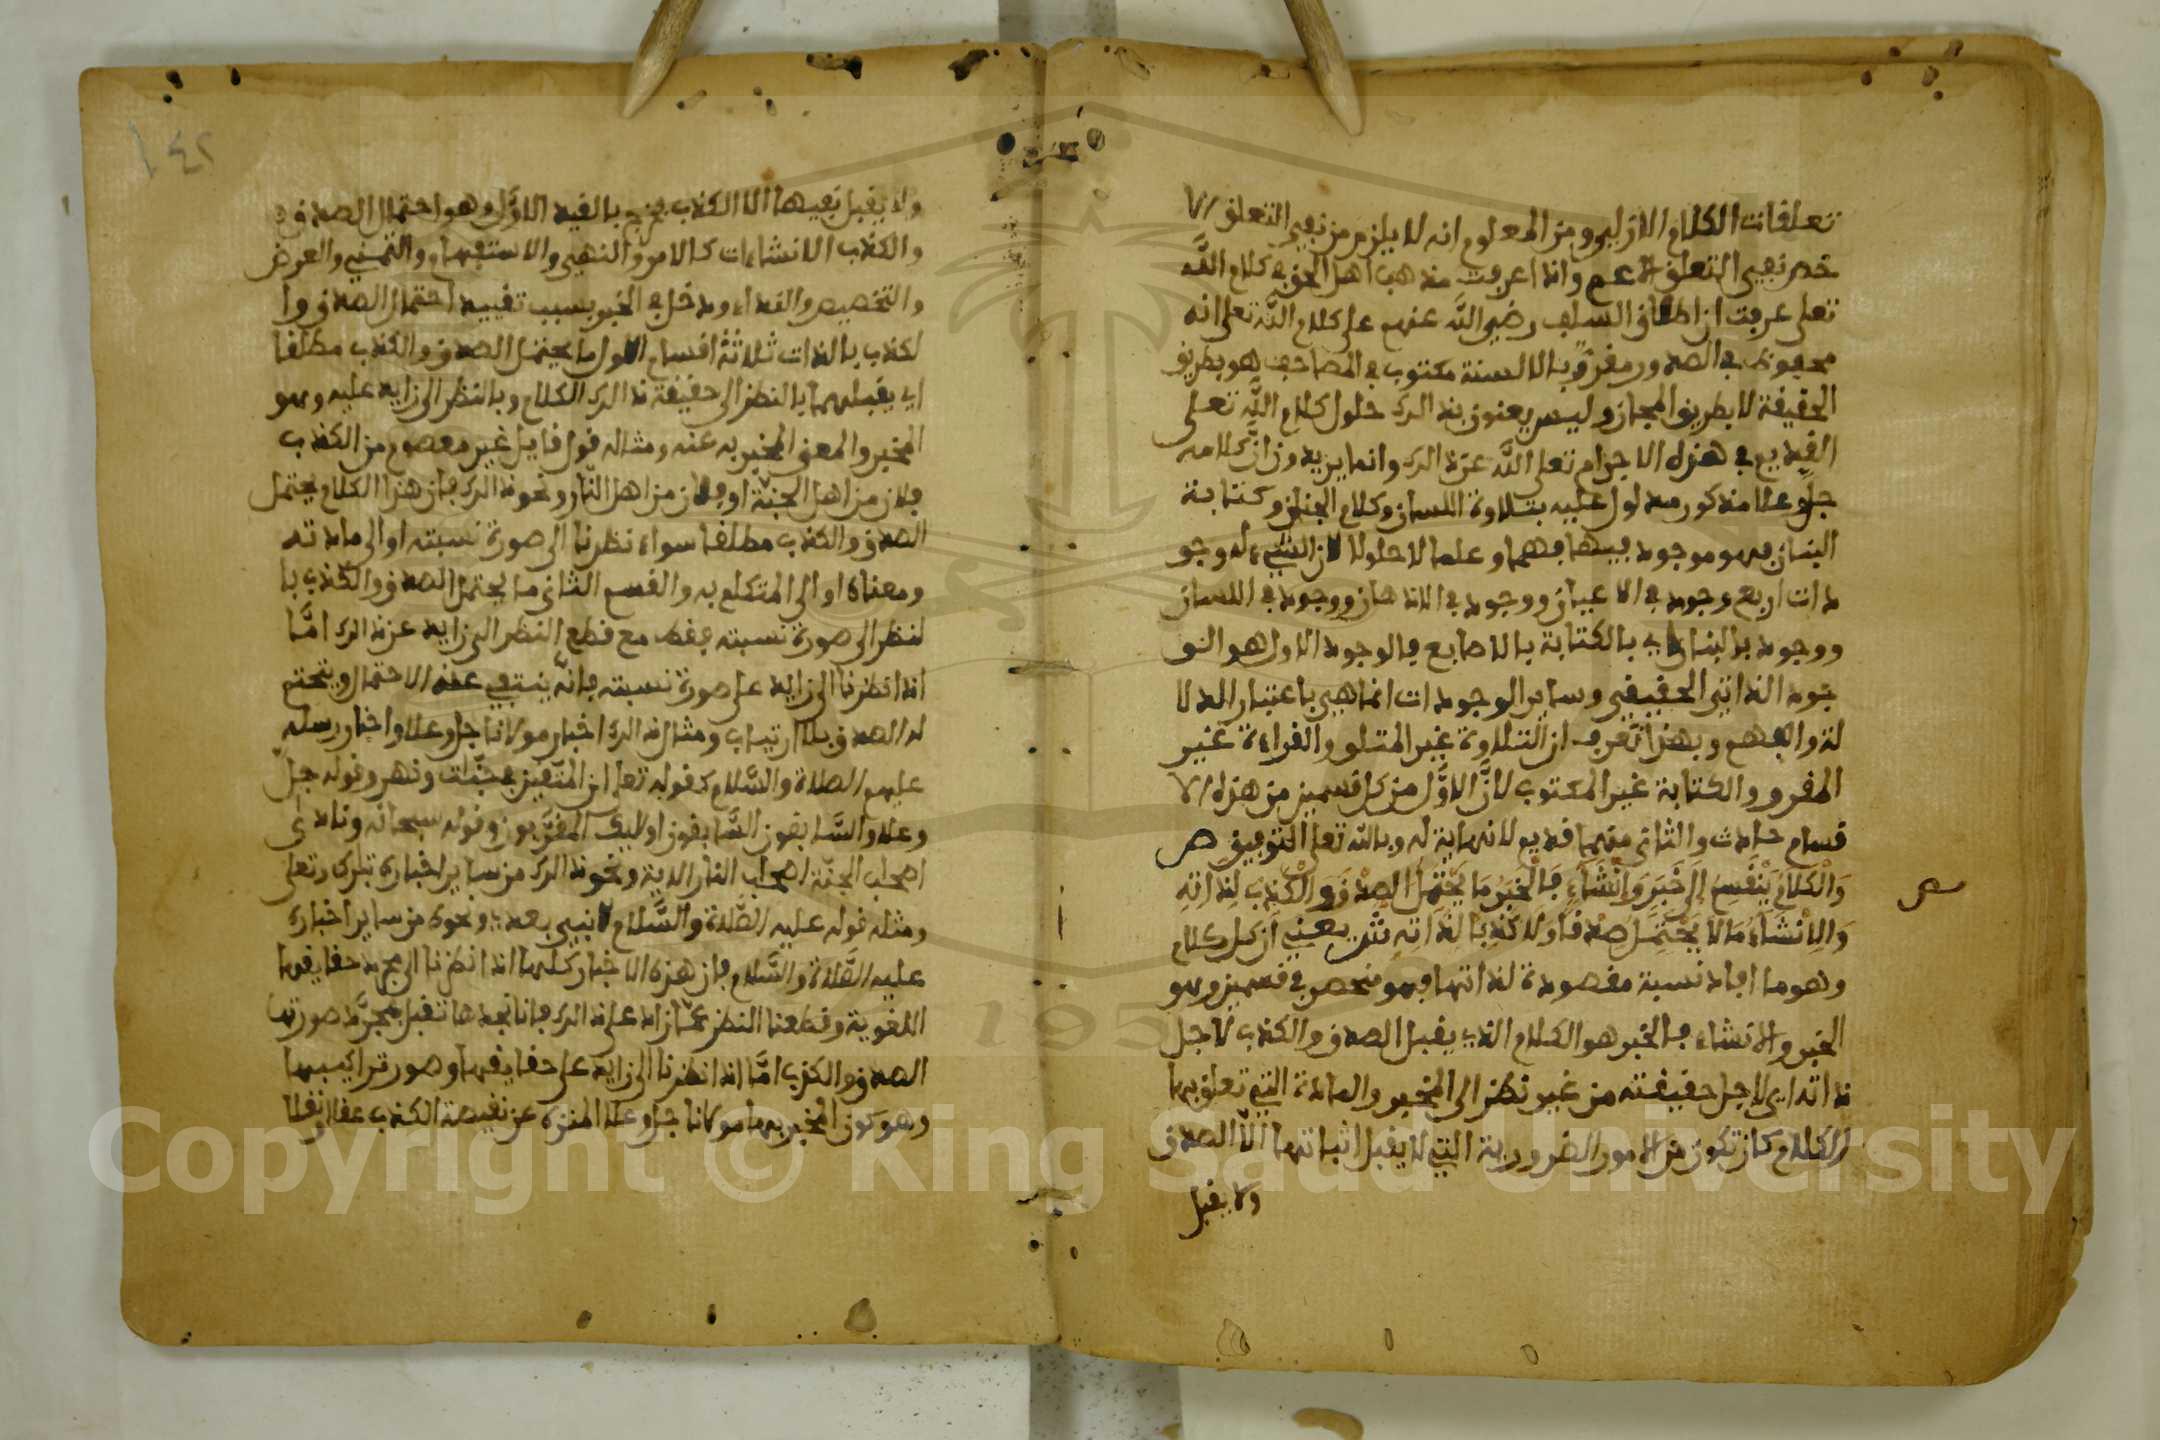 تعلقات الكلام الازلي ومن المعلوم انه لا يلزم من نفي التعلق الا
خص نفي التعلق الاعم واذا عرفت مذهب اهل الحق في كلام الله
تعلى عرفت ان اطلاق السلف رضي الله عنهم على كلام الله تعلى انه
محفوظ في الصدور مقروء بالالسنة مكتوب في المصاحف هو بطريق
الحقيقة لا بطريق المجاز وليس يعنون بذالك حلول كلام الله تعلى
القديم في هذه الاجرام تعلى الله عن ذالك وانما يريدون ان كلامه
جل وعلا مذكور مدلول عليه بتلاوة اللسان وكلام الجنان وكتابة
البنان فهو موجود فيها فهما وعلما لا حلولا لان الشيء له وجو
دات اربع وجود في الاعيان ووجود في الاذهان ووجود في اللسان
ووجود بالبنان اي بالكتابة بالاصابع فالوجود الاول هو الو
جود الذاتي الحقيقي وساير الوجودات انما هي باعتبار الدلا
لة والفهم وبهذا تعرف ان التلاوة غير المتلو والقراءة غير
المقرو والكتابة غير المكتوب لان الاول من كل قسمين من هذه الا
قسام حادث والثاني منهما قديم لا نهاية له وبالله تعلى التوفيق ص
وَالْكَلَامُ يَنْقَسِمُ إِلَى خَبَرٍ وَإِنْشَاءٍ فَالْخَبَرُ مَا يَحْتَمِلُ الصِّدْقَ وَالْكَذِبَ لِذَاتِهِ
وَالِانْشَاءُ مَا لَا يَحْتَمِلُ صِدْقًا وَلَا كَذِبًا لِذَاتِهِ ش يعني ان كل كلام
وهو ما افاد نسبة مقصودة لذاتها فهو منحصر في قسمين وهو
الخبر والانشاء فالخبر هو الكلام الذي يقبل الصدق والكذب لاجل
ذاته اي لاجل حقيقته من غير نظر الى المخبر والمادة التي تعلق بها
الكلام كان تكون من الامور الضرورية التي لا يقبل اثباتها الا الصدق
ولا يقبل
ص
١٤٢
ولا يقبل نفيها الا الكذب فخرج بالقيد الاول وهو احتمال الصدق
والكذب الانشاءات كالامر والنهي والاستفهام والتمني والعرض
والتخصيص والنداء ودخل في الخبر بسبب تقييد احتمال الصدق وا
لكذب بالذات ثلاثة اقسام الاول ما يحتمل الصدق والكذب مطلقا
اي يقبلهما بالنظر الى حقيقة ذالك الكلام وبالنظر الى زايد عليه وهو
المخبر والمعنى المخبر به عنه ومثاله قول قايل غير معصوم من الكذب
فلان من اهل الجنة او فلان من اهل النار ونحو ذالك فان هذا الكلام يحتمل
الصدق والكذب مطلقا سواء نظرنا الى صورة نسبته او الى مادته
ومعناه او الى المتكلم به والقسم الثاني ما يحتمل الصدق والكذب با
لنظر الى صورة نسبته فقط مع قطع النظر الى زايد عن ذالك امّا
اذا نظرنا الى زايد على صورة نسبته فانّه ينتفي عنه الاحتمال ويتحتم
له الصدق بلا ارتياب ومثال ذالك اخبار مولانا جل وعلا واخبار رسله
عليهم الصلاة والسّلام كقوله تعلى ان المتّقين في جنّات ونهر وقوله جلّ
وعلا والسّابقون السّابقون اوليك المقرّبون وقوله سبحانه ونادى
اصحاب الجنّة اصحاب النار الاية ونحو ذالك من ساير اخباره تبارك وتعلى
ومثله قوله عليه الصّلاة والسّلام لا نبيي بعدي ونحوه من ساير اخباره
عليه الصّلاة والسّلام فان هذه الاخبار كلها اذا نظرنا الى مجرد حقايقها
اللغوية وقطعنا النظر عمّا زاد على ذالك فانا نجدها تقبل بمجرّد صورتها
الصدق والكذب امّا اذا نظرنا الى زايد على حقايقها وصور تراكيبها
وهو كون المخبر بها مولانا جل وعلا المنزه عن نقيصة الكذب عقلا ونقلا
Copyright © King Saud University